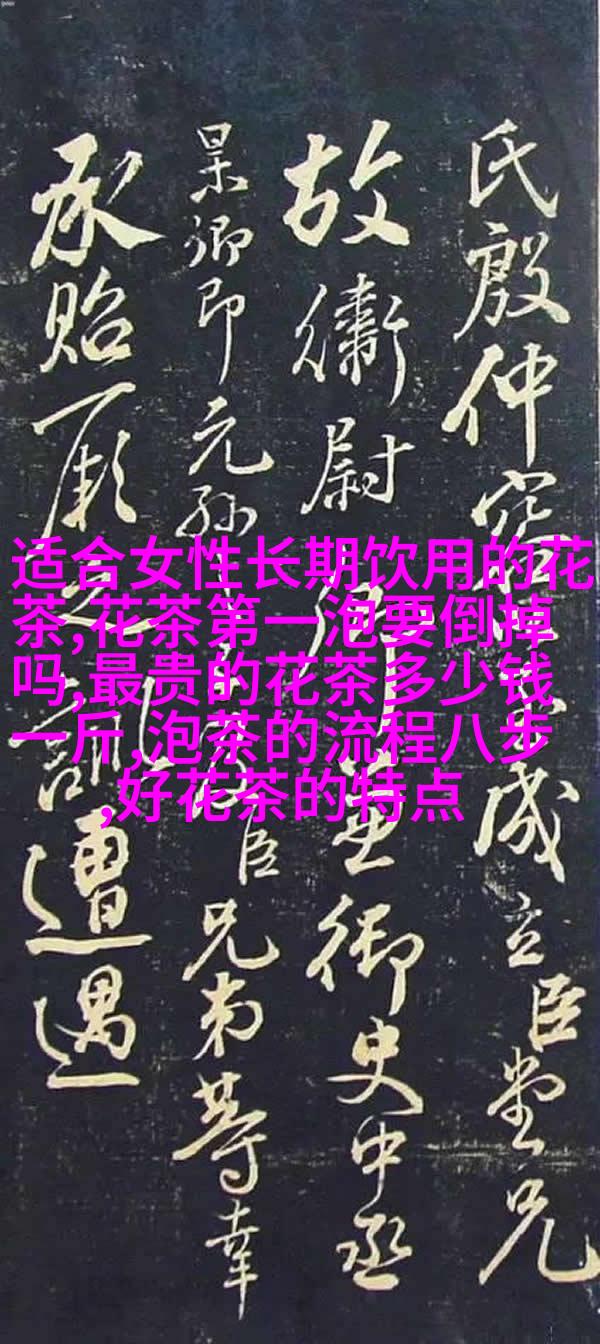 适合女性长期饮用的花
茶,花茶第一泡要倒掉
吗,最贵的花茶多少钱
一斤,泡茶的流程八步
,好花茶的特点
氏殷仲容成立臣堂兄
故衛尉卿兼御史中丞
杲卿即元孫臣兄弟等幸
承貽厥之訓遭遇